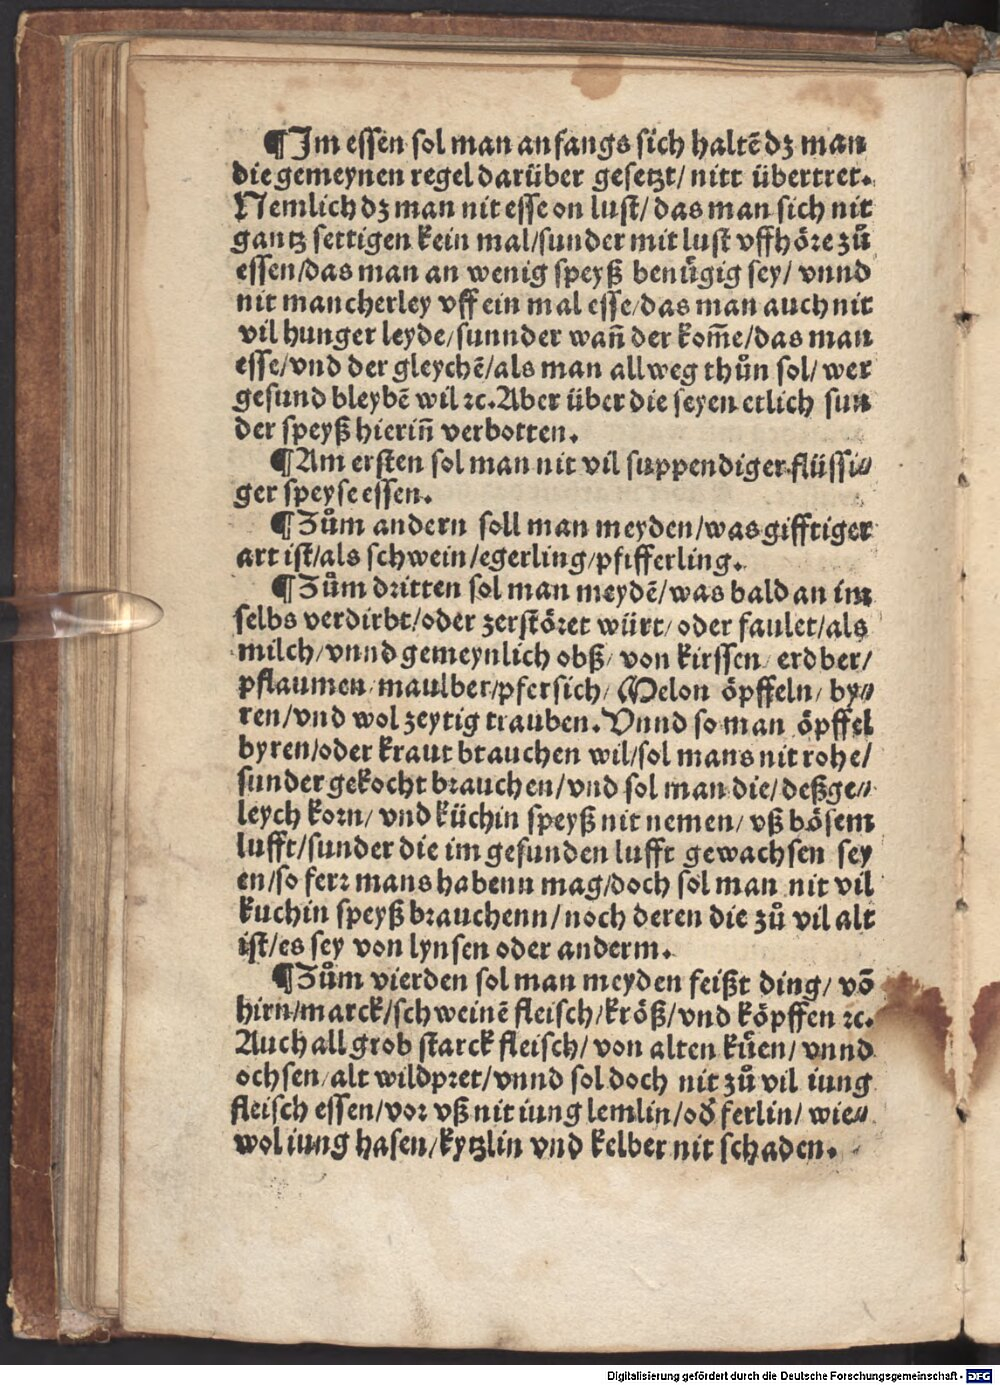 ¶Im essen sol man anfangs sich haltē dz man
die gemeynen regel darüber gesetzt/ nitt übertret.
Nemlich dz man nit esse on lust/ das man sich nit
gantz settigen kein mal/sunder mit lust vffhöre zů
essen/das man an wenig speyß benügig sey/ vnnd
nit mancherley vff ein mal esse/das man auch nit
vil hunger leyde/sunnder wañ der kom̄e/das man
esse/vnd der gleychē/als man allweg thůn sol/ wer
gesund bleybē wil ꝛc. Aber über die seyen etlich sun
der speyß hieriñ verbotten.
¶Am ersten sol man nit vil suppendiger flüssi⸗
ger speyse essen.
¶Zům andern soll man meyden/was gifftiger
art ist/als schwein/egerling/pfifferling.
¶Zům dritten sol man meydē/was bald an im
selbs verdirbt/oder zerstöret würt/ oder faulet/als
milch/vnnd gemeynlich obß/ von kirssen/ erdber/
pflaumen/maulber/pfersich/ Melon öpffeln/ by⸗
ren/vnd wol zeytig trauben. Vnnd so man öpffel
byren/oder kraut brauchen wil/sol mans nit rohe/
sunder gekocht brauchen/vnd sol man die/ deßge⸗
leych korn/ vnd küchin speyß nit nemen/ vß bösem
lufft/sunder die im gesunden lufft gewachsen sey
en/so ferꝛ mans habenn mag/doch sol man nit vil
kuchin speyß brauchenn/noch deren die zů vil alt
ist/es sey von lynsen oder anderm.
¶Zům vierden sol man meyden feißt ding/ vō
hirn/marck/schweinē fleisch/kröß/vnd köpffen ꝛc.
Auch all grob starck fleisch/ von alten kůen/ vnnd
ochsen/alt wildpret/vnnd sol doch nit zů vil iung
fleisch essen/vor vß nit iung lemlin/od̄ ferlin/ wie⸗
wol iung hasen/kytzlin vnd kelber nit schaden.
Digitalisierung gefördert durch die Deutsche Forschungsgemeinschaft - DFG